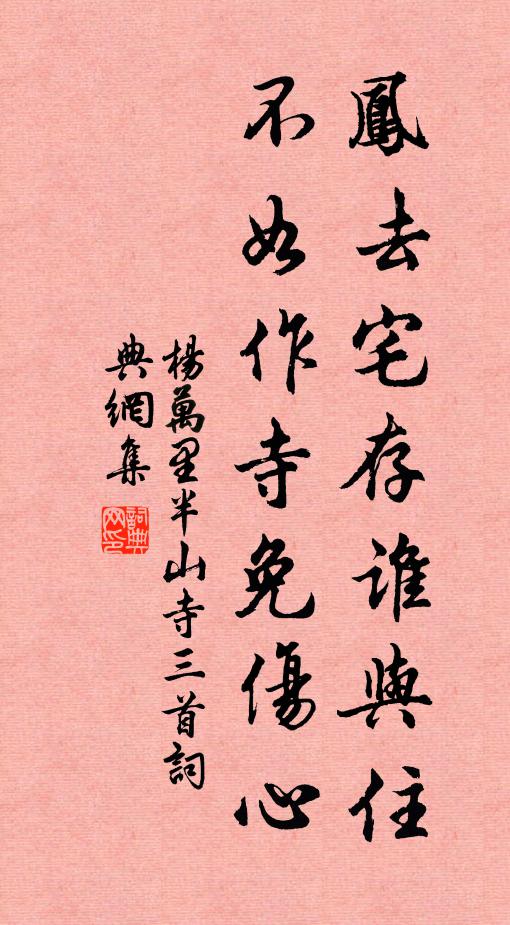 鳳去宅存誰與住
不如作寺免傷心
楊萬里半山寺三首詞
典網集
詞典網印